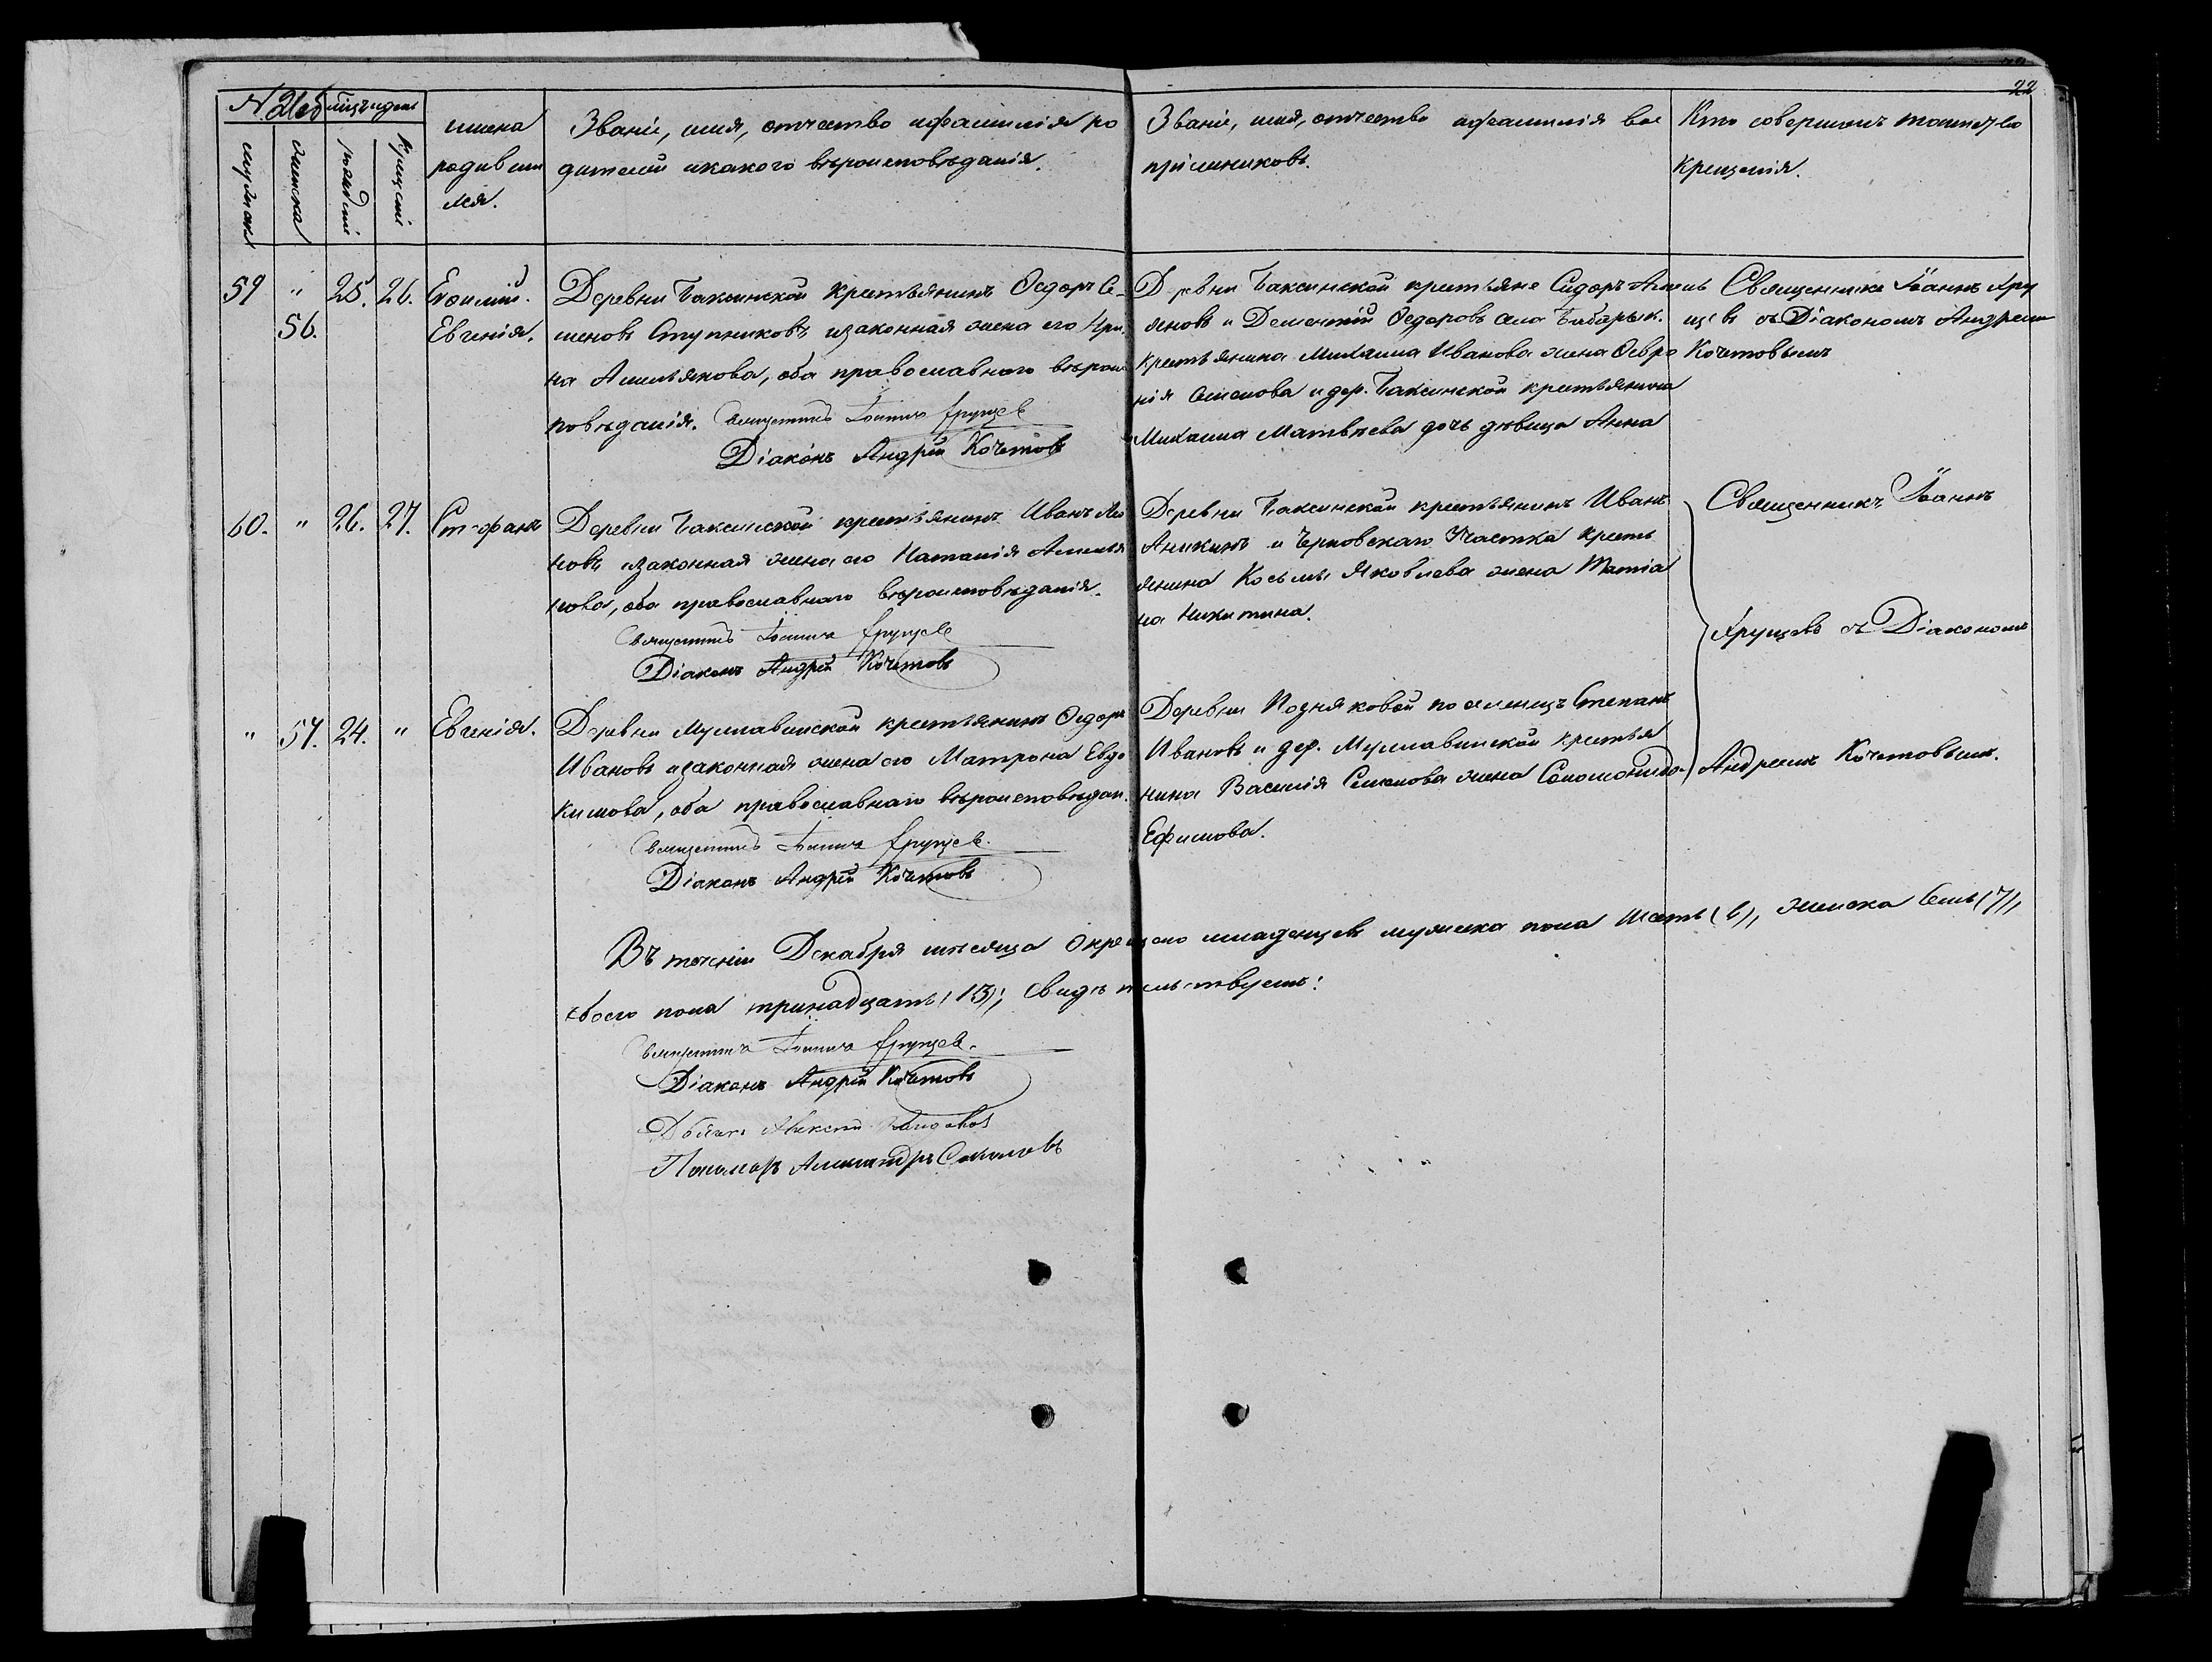 22
№ мѣсяцъ и день
мужска
женска
рожденія
крещенія
имена
родивших
ся.
Званіе, имя, отчество и фамилія ро
дителей и какого вѣроисповѣданія.
Званіе, имя, отчество и фамилія вос
пріемниковъ.
Кто совершилъ таинство
крещенія.
59 " 25. 26. Евѳимій.
56. Евгенія.
Деревни Баксинской крестьянинъ Ѳедоръ Се-
меновъ Ступниковъ и законная жена его Ири-
на Амельянова, оба православнаго вѣроис
повѣданія. Священникъ Іоаннъ Хрущев
Діаконъ Андрей Кочетовъ
Деревни Баксинской крестьяне Сидоръ Амель
яновъ и Дементій Ѳедоровъ села Бибарын.
крестьянина Михаила Иванова жена Ѳевро
нія Семенова и дер. Баксинской крестьянина
Михаила Матвѣева дочь дѣвица Анна
Священникъ Іоаннъ Хру
щевъ съ Діакономъ Андреемъ
Кочетовымъ
60. " 26. 27. Стефанъ
Деревни Баксинской крестьянинъ Иванъ
новъ и законная жена его Наталія Амелья
нова, оба православнаго вѣроисповѣданія.
Священникъ Іоаннъ Хрущев
Діаконъ Андрей Кочетовъ
Деревни Баксинской крестьянинъ Иванъ
Аникинъ и Черновскаго Участка кресть
янина Косьмы Яковлева жена Татіа
на Никитина.
Священникъ Іоаннъ
Хрущевъ съ Діакономъ
Андреемъ Кочетовымъ.
" 57. 24. " Евгенія.
Деревни Муллавинской крестьянинъ Ѳедоръ
Ивановъ и законная жена его Матрона Евдо
кимова, оба православнаго вѣроисповѣдан.
Священникъ Іоаннъ Хрущев.
Діаконъ Андрей Кочетовъ
Деревни Подняковой поселенецъ Степанъ
Ивановъ и дер. Муллавинской крестья
нина Василія Семенова жена Соломонида
Ефимова.
Въ теченіи Декабря мѣсяца окрещено младенцевъ мужска пола шесть (6), женска семь (7),
обоего пола тринадцать (13); свидѣтельствуемъ:
Священникъ Іоаннъ Хрущев.
Діаконъ Андрей Кочетовъ
Дьячекъ Алексей
Пономарь Александръ Соколовъ